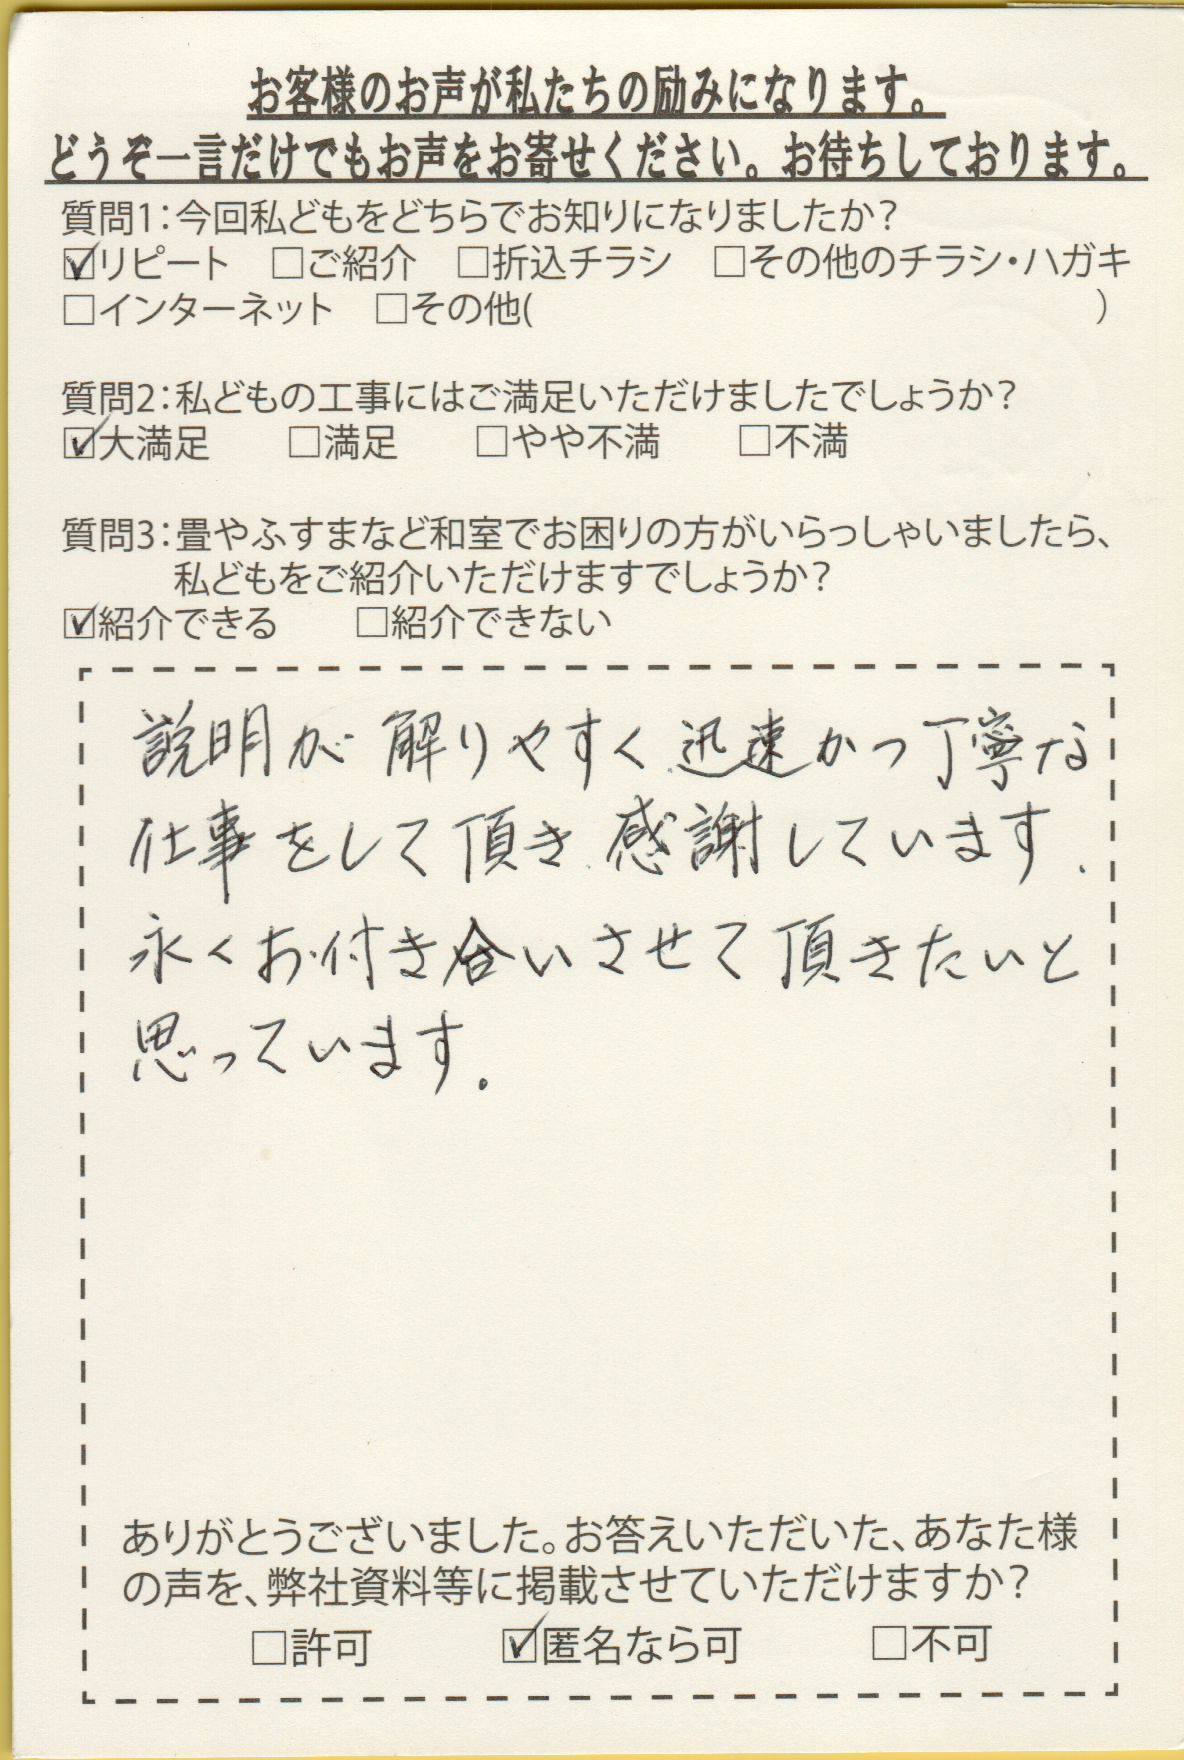 お客様のお声が私たちの励みになります。
どうぞ一言だけでもお声をお寄せください。お待ちしております。
質問1:今回私どもをどちらでお知りになりましたか?
☑リピート □ご紹介 □折込チラシ □その他のチラシ・ハガキ
□インターネット □その他( )
質問2:私どもの工事にはご満足いただけましたでしょうか?
☑大満足 □満足 □やや不満 □不満
質問3:畳やふすまなど和室でお困りの方がいらっしゃいましたら、
私どもをご紹介いただけますでしょうか?
☑紹介できる □紹介できない
説明が解りやすく迅速かつ丁寧な
仕事をして頂き感謝しています.
永くお付き合いさせて頂きたいと
思っています.
ありがとうございました。お答えいただいた、あなた様
の声を、弊社資料等に掲載させていただけますか?
□許可 ☑匿名なら可 □不可